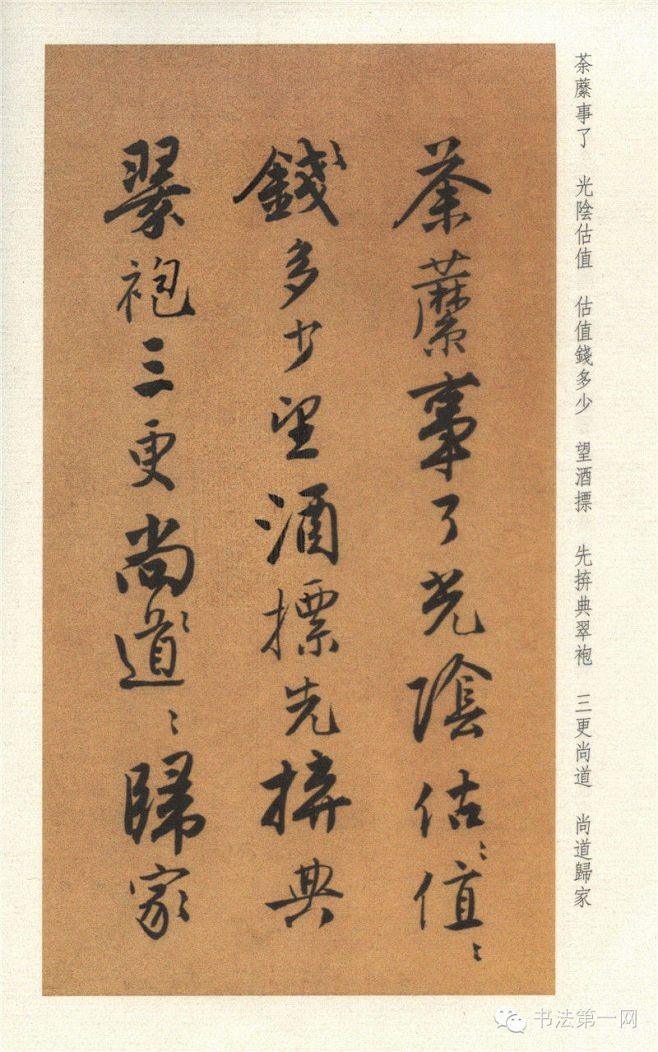 荼蘼事了光陰估〻值〻
錢多少望酒摽先拚典
翠袍三更尚〻道〻歸家
荼蘼事了　光陰估值　估值錢多少　望酒摽　先拚典翠袍　三更尚道　尚道歸家
书法第一网